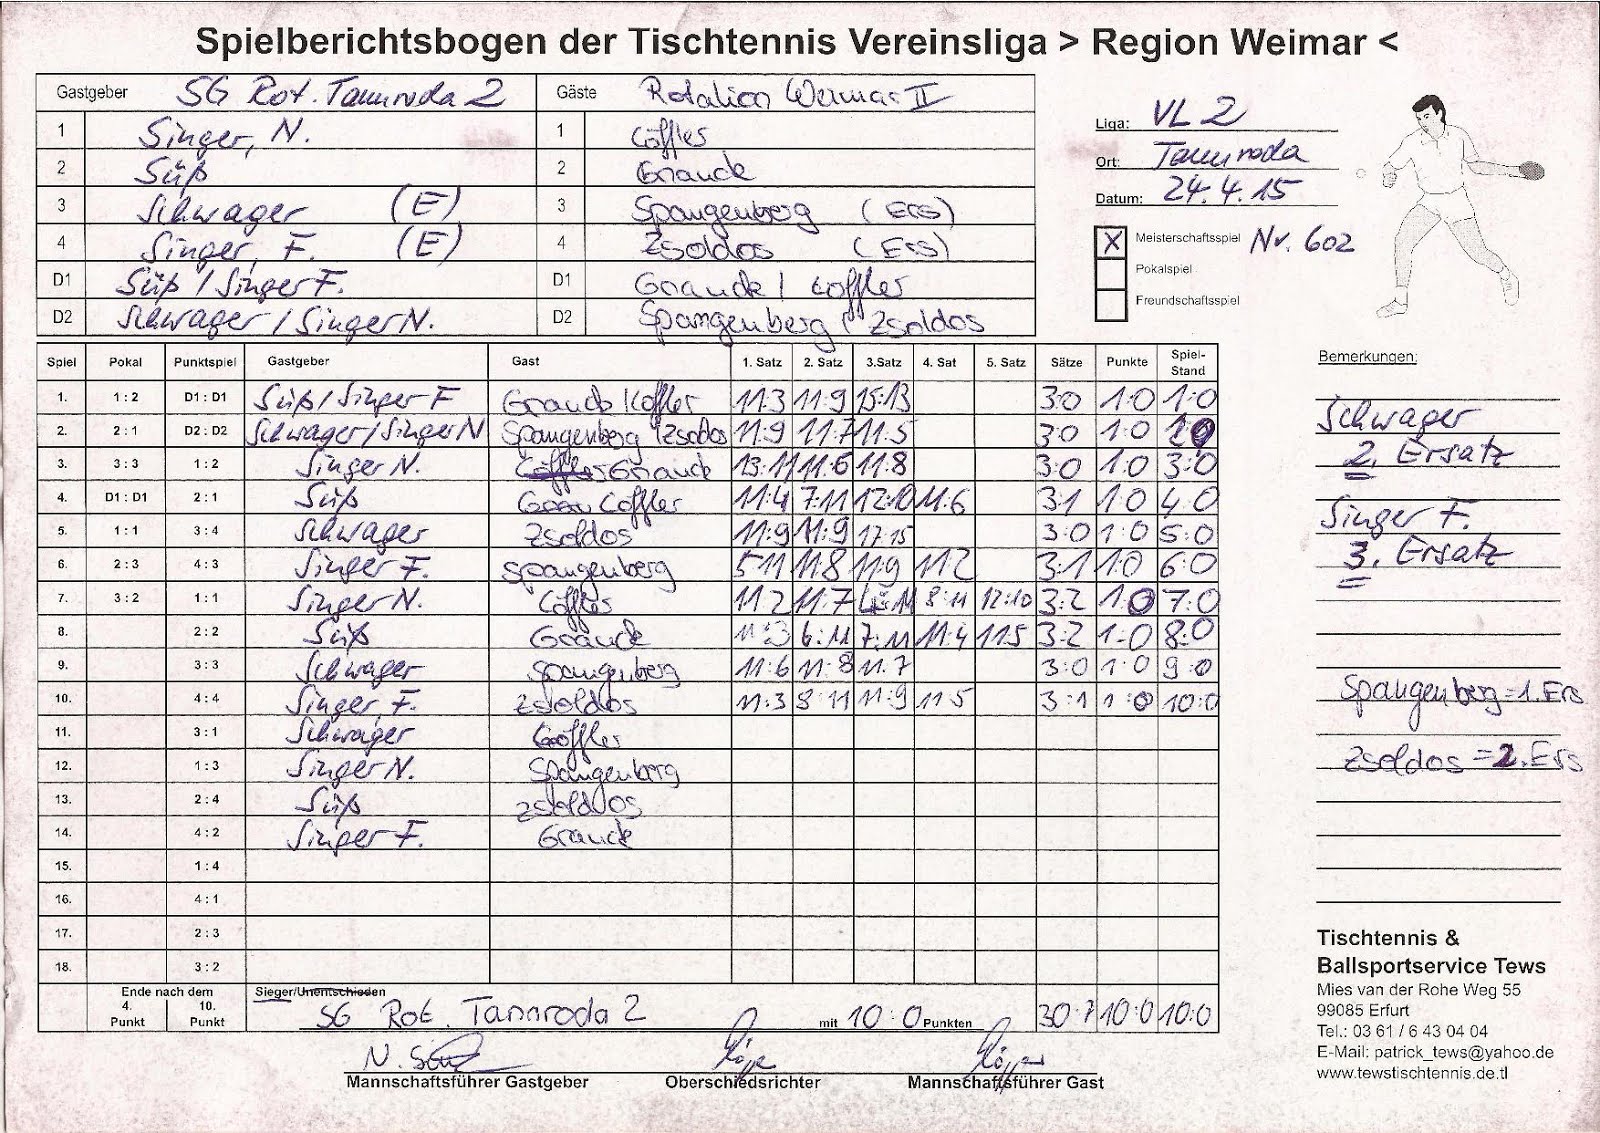 Spielberichtsbogen der Tischtennis Vereinsliga > Region Weimar <
Gastgeber SG Rot. Tannroda 2 Gäste Rotation Weimar II
1 Singer, N. 1 Löffler
2 Süß 2 Graude
3 Schwager (E) 3 Spangenberg (Ers)
4 Singer, F. (E) 4 Zsoldos (Ers)
D1 Süß / Singer F. D1 Graude / Löffler
D2 Schwager / Singer N. D2 Spangenberg / Zsoldos
Liga: VL 2
Ort: Tannroda
Datum: 24.4.15
X Meisterschaftsspiel Nr. 602
Pokalspiel
Freundschaftsspiel
Spiel Pokal Punktspiel Gastgeber Gast 1. Satz 2. Satz 3.Satz 4. Sat 5. Satz Sätze Punkte Spiel-
Stand
1. 1 : 2 D1 : D1 Süß / Singer F Graude / Löffler 11:3 11:9 15:13 3:0 1:0 1:0
2. 2 : 1 D2 : D2 Schwager / Singer N Spangenberg / Zsoldos 11:9 11:7 11:5 3:0 1:0
3. 3 : 3 1 : 2 Singer N. Graude 13:11 11:6 11:8 3:0 1:0 3:0
4. D1 : D1 2 : 1 Süß Löffler 11:4 7:11 12:10 11:6 3:1 1:0 4:0
5. 1 : 1 3 : 4 Schwager Zsoldos 11:9 11:9 17:15 3:0 1:0 5:0
6. 2 : 3 4 : 3 Singer F. Spangenberg 5:11 11:8 11:9 11:2 3:1 1:0 6:0
7. 3 : 2 1 : 1 Singer N. Löffler 11:2 11:7 8:11 12:10 3:2 1:0 7:0
8. 2 : 2 Süß Graude 11:3 6:11 7:11 11:4 11:5 3:2 1:0 8:0
9. 3 : 3 Schwager Spangenberg 11:6 11:8 11:7 3:0 1:0 9:0
10. 4 : 4 Singer, F. Zsoldos 11:3 8:11 11:9 11:5 3:1 1:0 10:0
11. 3 : 1 Schwager Löffler
12. 1 : 3 Singer N. Spangenberg
13. 2 : 4 Süß Zsoldos
14. 4 : 2 Singer F. Graude
15. 1 : 4
16. 4 : 1
17. 2 : 3
18. 3 : 2
Ende nach dem
4. 10.
Punkt Punkt
Sieger/Unentschieden
SG Rot. Tannroda 2 mit 10:0 Punkten 30:7 10:0 10:0
Mannschaftsführer Gastgeber Oberschiedsrichter Mannschaftsführer Gast
Bemerkungen:
Schwager
2. Ersatz
Singer F.
3. Ersatz
Spangenberg = 1. Ers
Zsoldos = 2. Ers
Tischtennis &
Ballsportservice Tews
Mies van der Rohe Weg 55
99085 Erfurt
Tel.: 03 61 / 6 43 04 04
E-Mail: patrick_tews@yahoo.de
www.tewstischtennis.de.tl